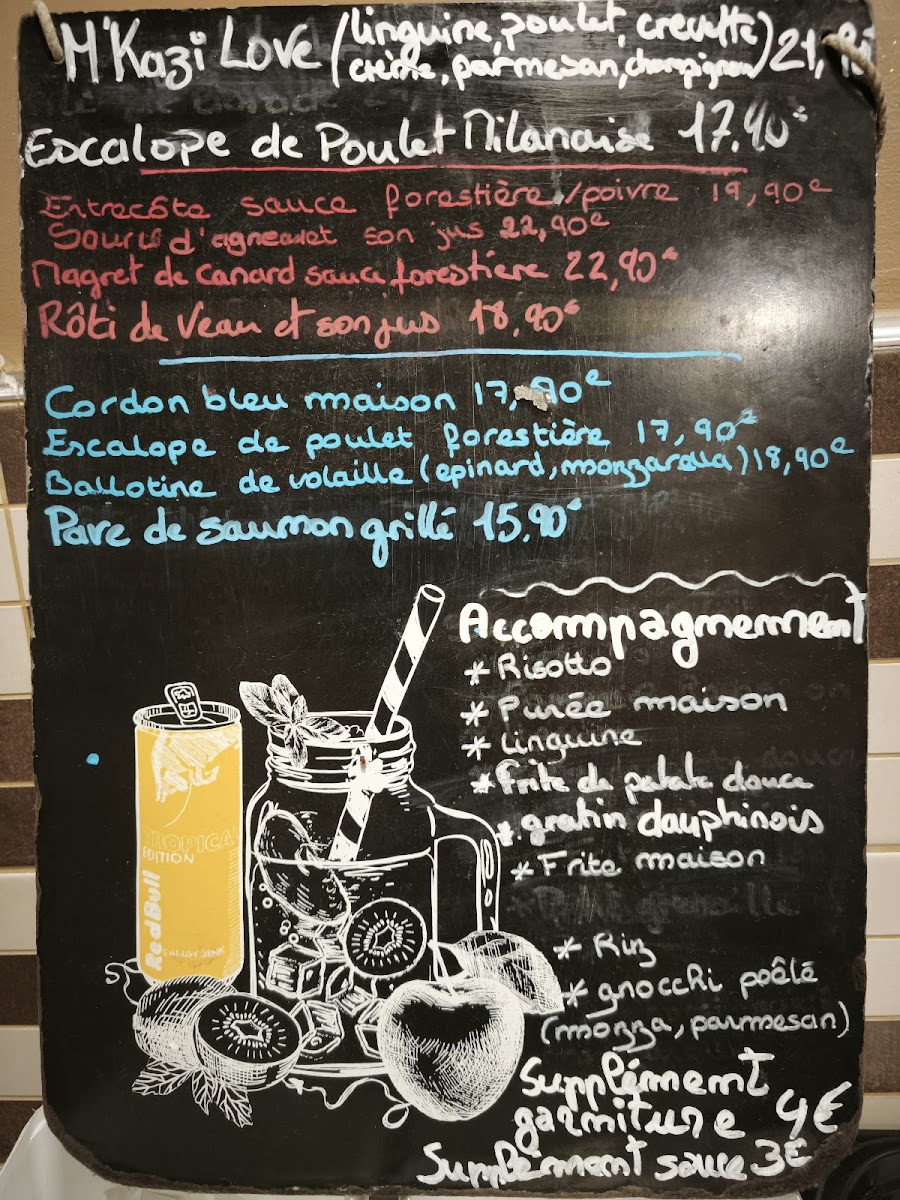 M'Kazi Love (linguine, poulet, crevette
crème, parmesan, champignon) 21,
Escalope de Poulet Milanaise 17.90€
Entrecôte sauce forestière/poivre 19,90€
Souris d'agneau et son jus 22,90€
Magret de canard sauce forestière 22,90€
Rôti de Veau et son jus 18,90€
Cordon bleu maison 17,90€
Escalope de poulet forestière 17,90€
Ballotine de volaille (epinard, mozzarella) 18,90€
Pave de saumon grillé 15,90€
Accompagnement
* Risotto
* Purée maison
* linguine
* Frite de patate douce
* gratin dauphinois
* Frite maison
* Riz
* gnocchi poêlé
(mozza, parmesan)
Supplément
garniture 4€
Supplément sauce 3€
TROPICAL
EDITION
RedBull
ENERGY DRINK